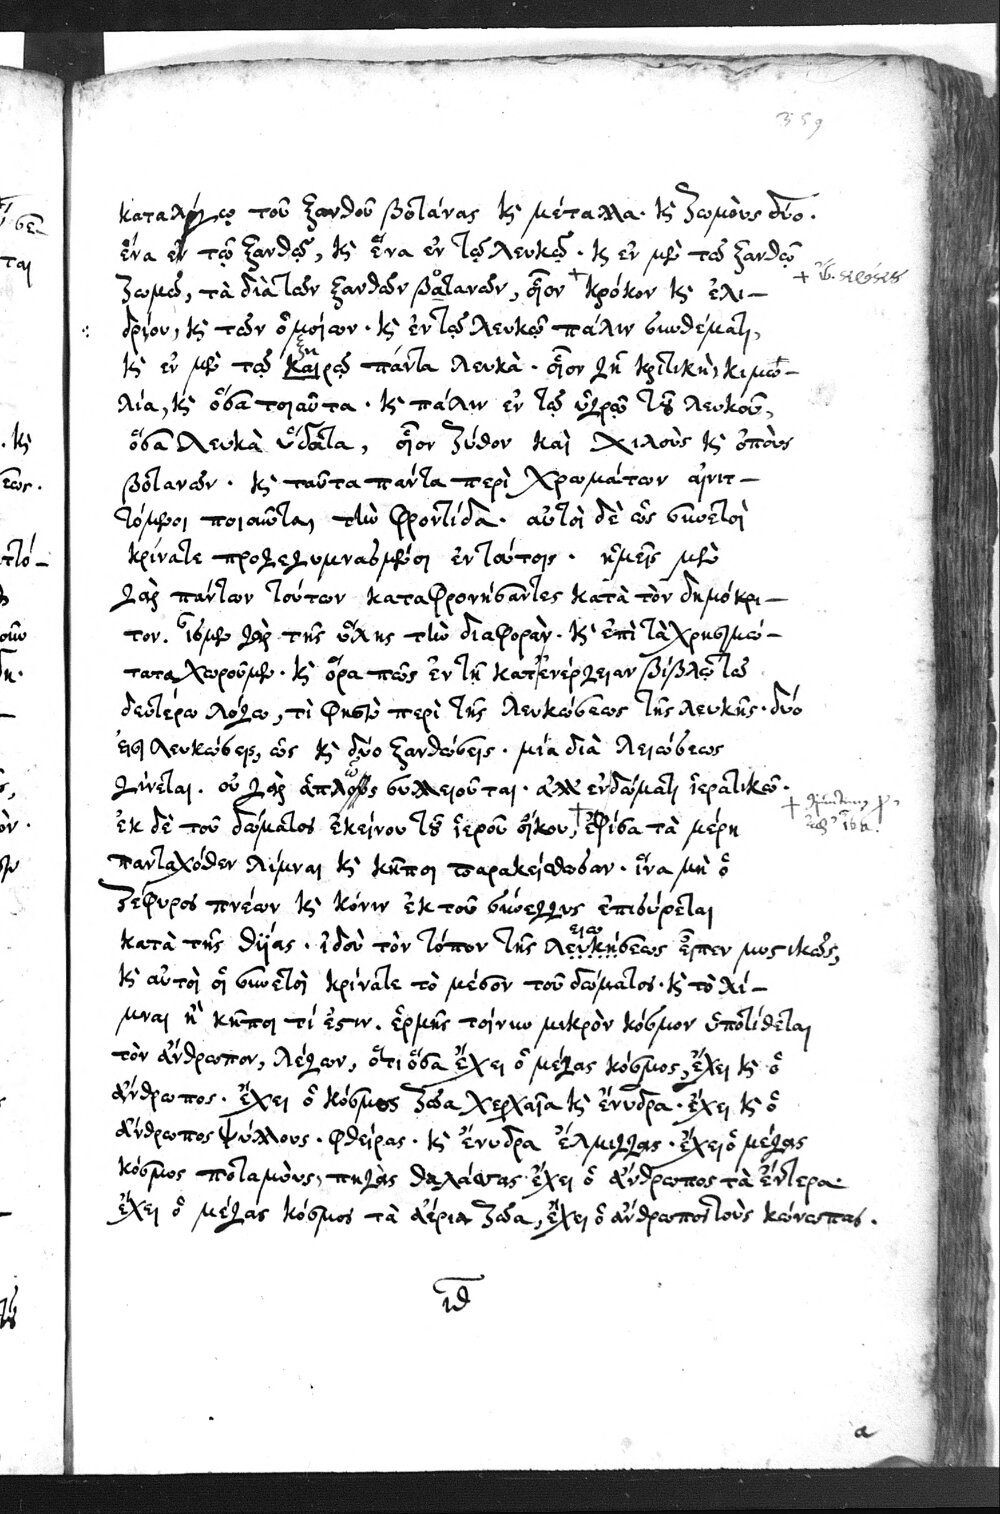 359
καταλόγῳ τοῦ ξανθοῦ βοτάνας κ̀ μέταλλα· κ̀ ζωμοὺς δύο·
ἕνα ἐν τῷ ξανθῷ, κ̀ ἕνα ἐν τῷ λευκῷ· κ̀ ἐν μὲν τῷ ξανθῷ
ζωμῷ, τὰ διὰ τῶν ξανθῶν βοτανῶν, οἷον + κρόκον κ̀ ἐλι–
δρίου, κ̀ τῶν ὁμοίων· κ̀ ἐν τῷ λευκῷ πάλιν συνθέματι,
κ̀ ἐν μὲν τῷ καιρῷ πάντα λευκὰ· οἷον γῆ κρητικὴ, κιμω–
λία, κ̀ ὅσα τοιαῦτα· κ̀ πάλιν ἐν τῷ ὑγρῷ τοῦ λευκοῦ,
ὅσα λευκὰ ὕδατα, οἷον ζύθον καὶ χιλοὺς κ̀ ὀποὺς
βοτανῶν· κ̀ ταῦτα πάντα περὶ χρωμάτων αἰνιτ–
τόμενοι ποιοῦνται τὴν φροντίδα· αὐτοὶ δὲ ὡς συνετοὶ
κρίνατε προγεγυμνασμένοι ἐν τούτοις· ἡμεῖς μὲν
γὰρ πάντων τούτων καταφρονήσαντες κατὰ τὸν δημόκρι–
τον· ἴσμεν γὰρ τῆς ὕλης τὴν διαφορὰν· κ̀ ἐπὶ τὰ χρησιμώ–
τατα χωροῦμεν· κ̀ ὅρα πῶς ἐν τῇ κατ' ἐνέργειαν βίβλῳ τῷ
δευτέρῳ λόγῳ, τί φησὶ περὶ τῆς λευκώσεως τῆς λευκῆς· δύο
εἰσὶ λευκώσεις, ὡς κ̀ δύο ξανθώσεις· μία διὰ λειώσεως
γίνεται· οὐ γὰρ ἁπλῶς συλλειοῦται· ἀλλ' ἐν δώματι ἱερατικῷ·
ἐκ δὲ τοῦ δώματος ἐκείνου τοῦ ἱεροῦ οἴκου, + ἐφ' ἴσα τὰ μέρη
πανταχόθεν λίμναι κ̀ κῆποι παρακείσθωσαν· ἵνα μὴ ὁ
ζέφυρος πνέων κ̀ κόνιν ἐκ τοῦ σύνεγγυς ἐπισύρεται
κατὰ τῆς θυΐας· ἰδοὺ τὸν τόπον τῆς λευκώσεως εἶπεν μυστικῶς,
κ̀ αὐτοὶ οἱ συνετοὶ κρίνατε τὸ μέσον τοῦ δώματος· κ̀ τὸ λί–
μναι ἢ κῆποι τί ἐστιν· ἑρμῆς τοίνυν μικρὸν κόσμον ὑποτίθεται
τὸν ἄνθρωπον, λέγων, ὅτι ὅσα ἔχει ὁ μέγας κόσμος, ἔχει κ̀ ὁ
ἄνθρωπος· ἔχει ὁ κόσμος ζῷα χερχαῖα κ̀ ἔνυδρα· ἔχει κ̀ ὁ
ἄνθρωπος ψύλλους· φθείρας· κ̀ ἔνυδρα ἕλμιγγας· ἔχει ὁ μέγας
κόσμος ποταμοὺς, πηγὰς θαλάσσας· ἔχει ὁ ἄνθρωπος τὰ ἔντερα
ἔχει ὁ μέγας κόσμος τὰ ἀέρια ζῷα, ἔχει ὁ ἄνθρωπος τοὺς κώνωπας·
ιθ
a